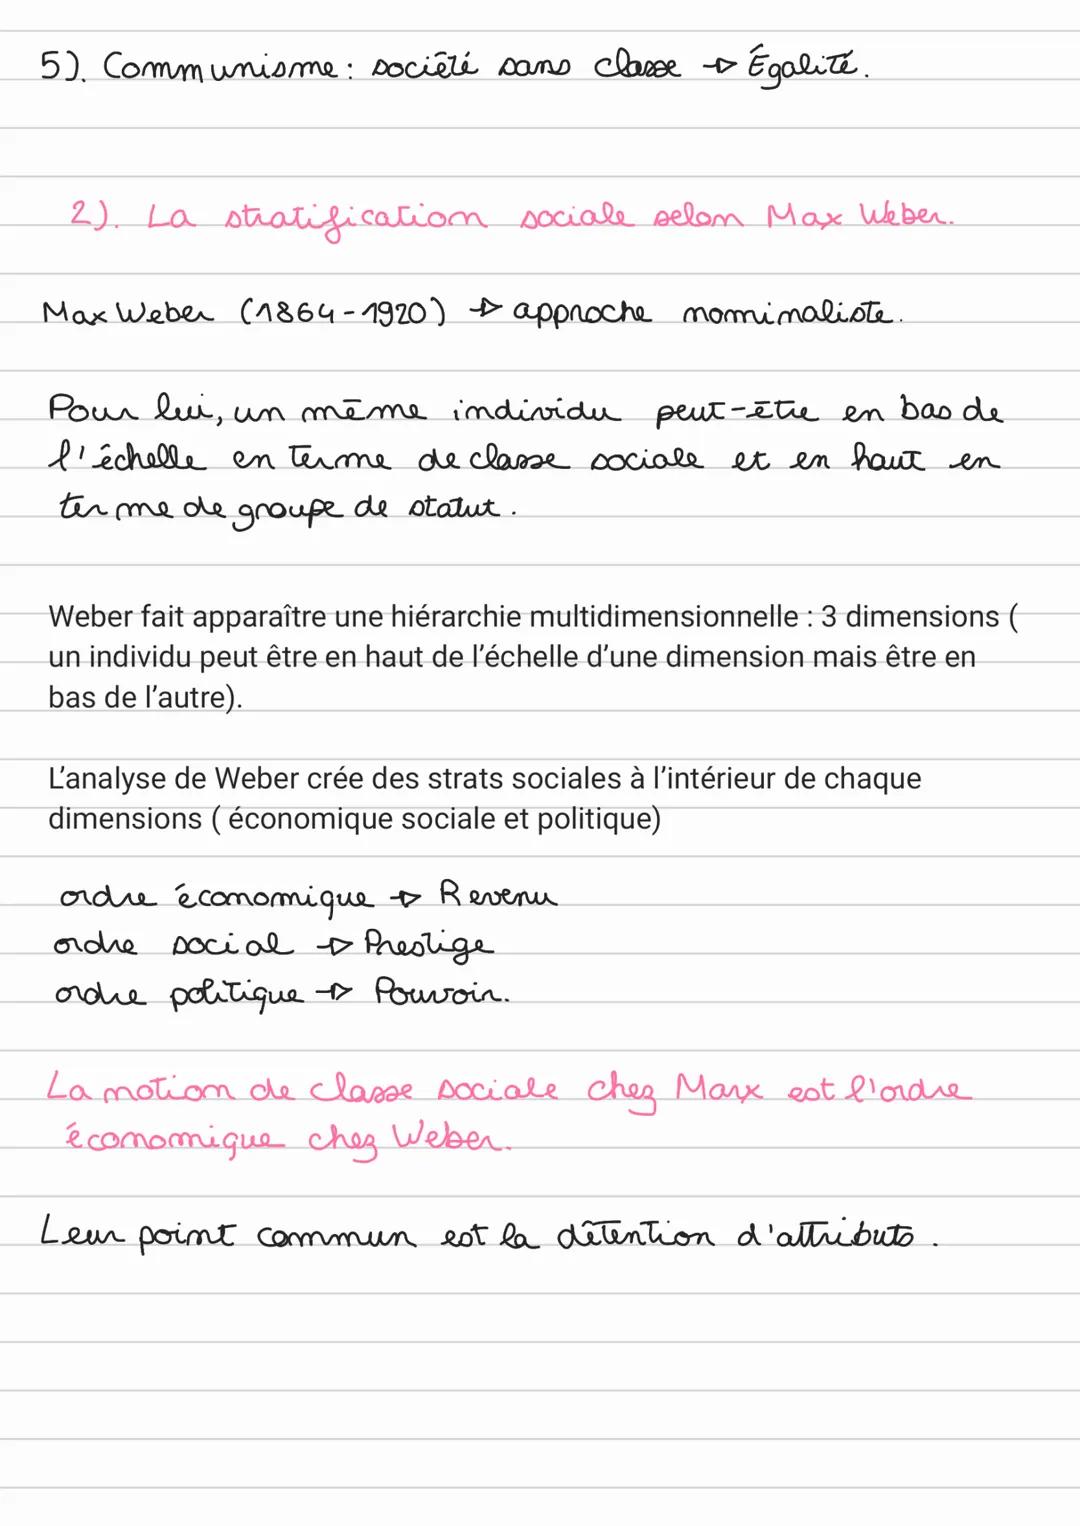 5). Communisme : société sans classe → Égalité.
2). La stratification sociale selon Max Weber.
Max Weber (1864-1920) → approche nominaliste.
Pour lui, un même individu peut-être en bas de
l'échelle en terme de classe sociale et en haut en
terme de groupe de statut.
Weber fait apparaître une hiérarchie multidimensionnelle : 3 dimensions (
un individu peut être en haut de l'échelle d'une dimension mais être en
bas de l'autre).
L'analyse de Weber crée des strats sociales à l'intérieur de chaque
dimensions ( économique sociale et politique)
ordre économique → Revenu
ordre social → Prestige
ordre politique → Pouvoir.
La notion de classe sociale chez Marx est l'ordre
économique chez Weber.
Leur point commun est la détention d'attributs.